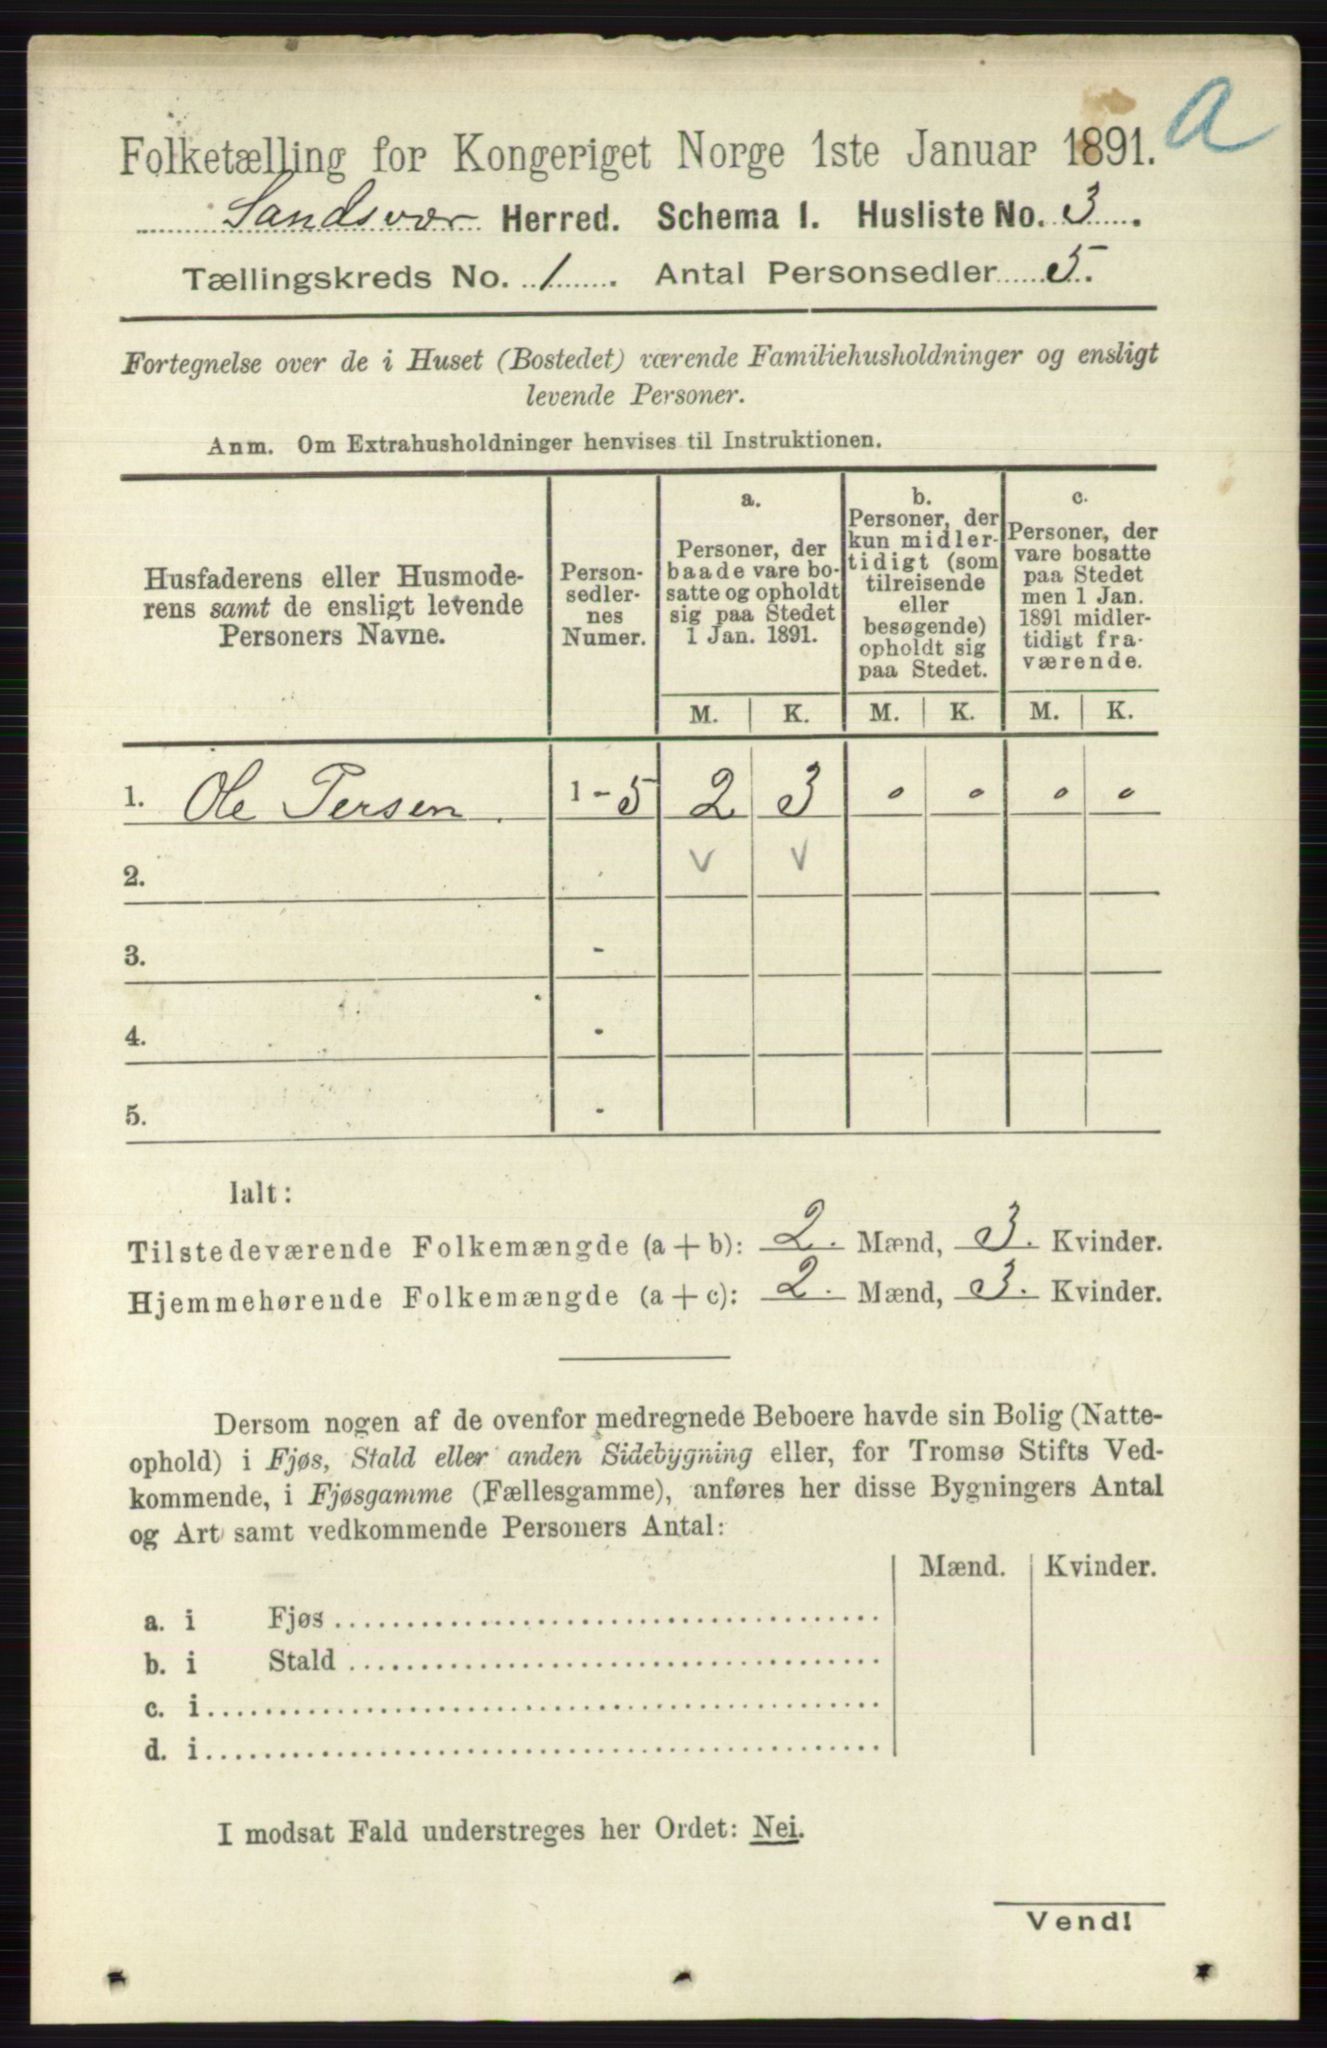 a
Folketælling for Kongeriget Norge 1ste Januar 1891.
Sandsvær Herred. Schema 1. Husliste No. 3.
Tællingskreds No. 1. Antal Personsedler 5.
Fortegnelse over de i Huset (Bostedet) værende Familiehusholdninger og ensligt
levende Personer.
Anm. Om Extrahusholdninger henvises til Instruktionen.
Husfaderens eller Husmode-
rens samt de ensligt levende
Personers Navne.
Person-
sedler-
nes
Numer.
a.
Personer, der
baade vare bo-
satte og opholdt
sig paa Stedet
1 Jan. 1891.
b.
Personer, der
kun midler-
tidigt (som
tilreisende
eller
besøgende)
opholdt sig
paa Stedet.
c.
Personer, der
vare bosatte
paa Stedet
men 1 Jan.
1891 midler-
tidigt fra-
værende.
M. K. M. K. M. K.
1. Ole Persen. 1-5 2 3 0 0 0 0
2. v v
3. -
4. -
5. -
Ialt:
Tilstedeværende Folkemængde (a+b): 2. Mænd, 3. Kvinder.
Hjemmehørende Folkemængde (a+c): 2. Mænd, 3. Kvinder.
Dersom nogen af de ovenfor medregnede Beboere havde sin Bolig (Natte-
ophold) i Fjøs, Stald eller anden Sidebygning eller, for Tromsø Stifts Ved-
kommende, i Fjøsgamme (Fællesgamme), anføres her disse Bygningers Antal
og Art samt vedkommende Personers Antal:
Mænd. Kvinder.
a. i Fjøs
b. i Stald
c. i
d. i
I modsat Fald understreges her Ordet: Nei.
Vend!